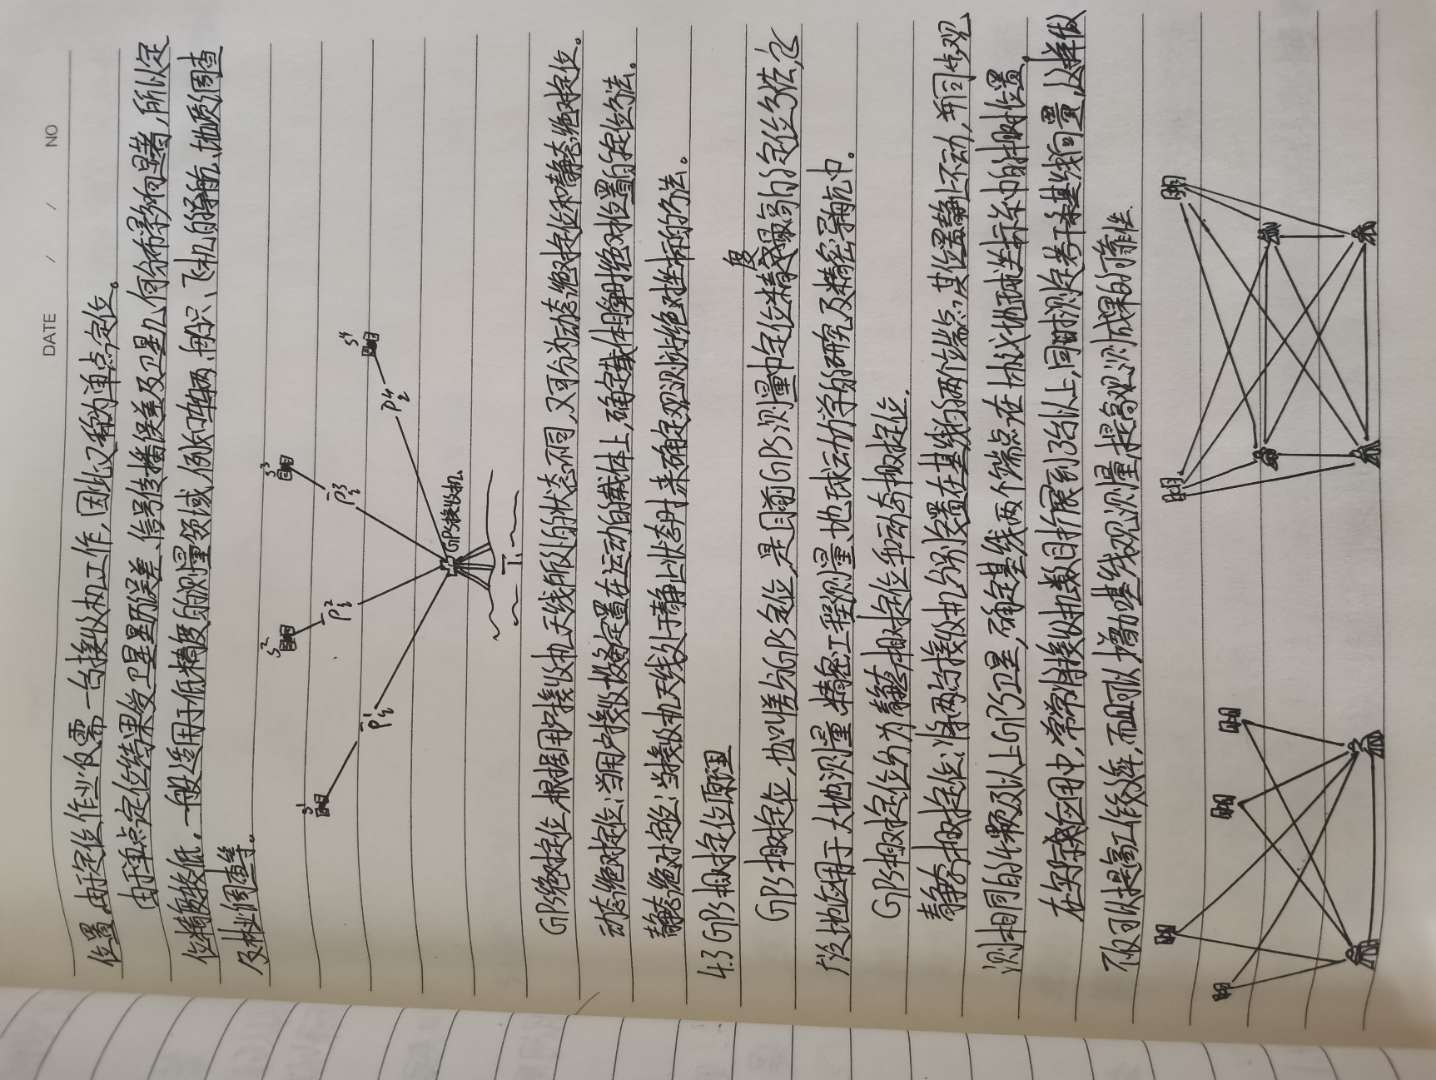 DATE / / NO
位置,由于定位作业仅需一台接收机工作,因此又称为单点定位。
由于单点定位结果受卫星星历误差、信号传播误差及卫星几何分布影响显著,所以定
位精度较低。一般适用于低精度的测量领域,例如车辆、船只、飞机的导航、地质调查
及林业调查等。
S¹ S² S³ S⁴
GPS接收机
GPS绝对定位,根据用户接收机天线所处的状态不同,又可分为动态绝对定位和静态绝对定位。
动态绝对定位:当用户接收设备安置在运动的载体上,确定载体瞬时绝对位置的定位方法。
静态绝对定位:当接收机天线处于静止状态时,来确定观测站绝对坐标的方法。
4.3 GPS相对定位原理
GPS相对定位,也叫差分GPS定位,是目前GPS测量中定位精度最高的定位方法,它
广泛地应用于大地测量、精密工程测量、地球动力学的研究及精密导航中。
GPS相对定位分为静态相对定位和动态相对定位。
静态相对定位:将两台接收机分别安置在基线的两个端点,其位置静止不动,并同步观
测相同的4颗及以上GPS卫星,确定基线两个端点在协议地球坐标系中的相对位置。
在实际应用中,常常将接收机数目扩展到3台以上,同时测定若干条基线向量,这样做
不仅可以提高工作效率,而且可以增加基线观测量,提高观测成果的可靠性.